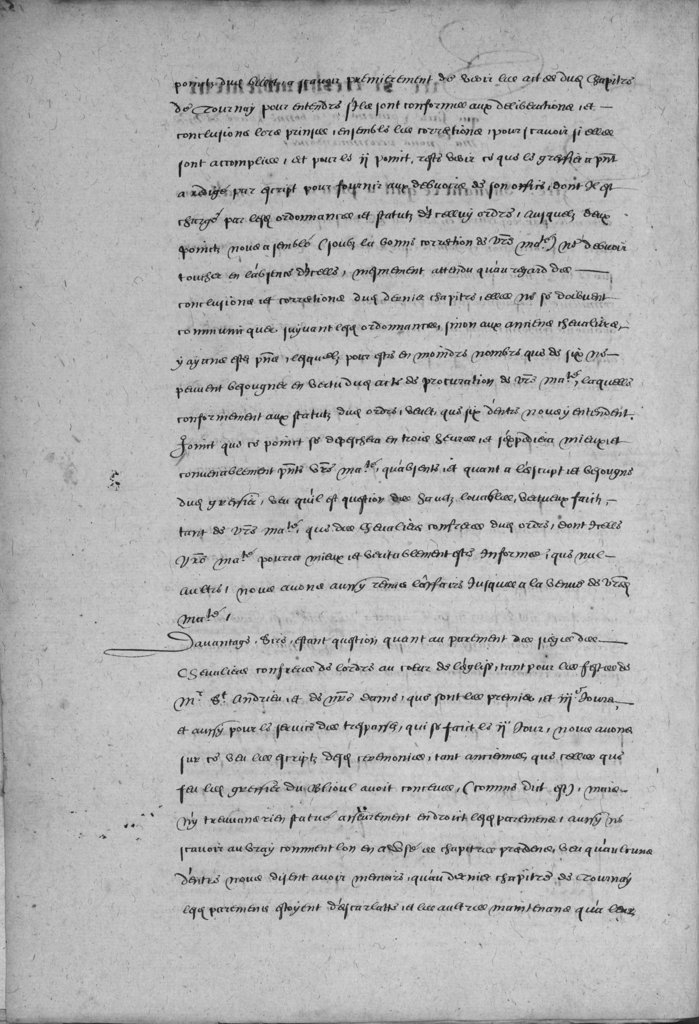 pointz dud. billet, a scavoir premierement de veoir les actes dud. chapitre
de Tournay pour entendre s'ilz sont conformes aux deliberations et
conclusions lors prinses, ensemble les corrections, pour scavoir si elles
sont accomplies, et pour le ij point, reste veoir ce que le greffier pnt
a redigé par escript pour fournir aux debvoirs de son office, dont il est
chargé par lesd. ordonnances et statutz d'icelluy ordre, ausquelz deux
pointz nous a semblé (soubz la bonne correction de vre mate) ne debvoir
toucher en l'absence d'icelle, mesmement attendu qu'au regard des
conclusions et corrections dud. dernier chapitre, elles ne se doibvent
communicquer, suyvant lesd. ordonnances, sinon aux anciens chevaliers,
y ayans esté pns, lesquelz pour estre en moindre nombre que de six ne
peuvent besongner en vertu dud. acte de procuration de vre mate, laquelle
conformement aux statutz dud. ordre, veult que six d'entre nous y entendent.
Joinct que ce poinct se depeschera en trois heures et s'expediera mieulx et
convenablement pnte vre mate, qu'absente et quant a l'escript et besongne
dud. greffier, veu qu'il est question des haultz louables, vertueux faictz,
tant de vre mate, que des chevaliers confreres dud. ordre, dont icelle
vre mate pourra mieux et veritablement estre informee, que nul
aultre, nous avons aussy remis l'affaire jusques a la venue de vre
mate.
Davantage, Sire, estant question quant au parement des sieges des
chevaliers confreres de l'ordre au coeur de l'eglise, tant pour les festes de
Mr St Andrieu et de nre dame, que sont les premier et iije jours,
et aussy pour le service des trespassez, qui se faict le ije jour, nous avons
sur ce veu les escriptz desd. ceremonies, tant anciennes, que celles que
feu led. greffier du Blioul avoit conceues, (comme dict est), mais
n'y treuvans rien statué asseurement endroit lesd. paremens, aussy ne
scavoir au vray comment lon en a usé es chapitres precedens, veu qu'aulcuns
d'entre nous disent avoir memoire, qu'au dernier chapitre de Tournay
lesd. paremens estoyent d'escarlatte, et les aultres maintenans qu'a leur